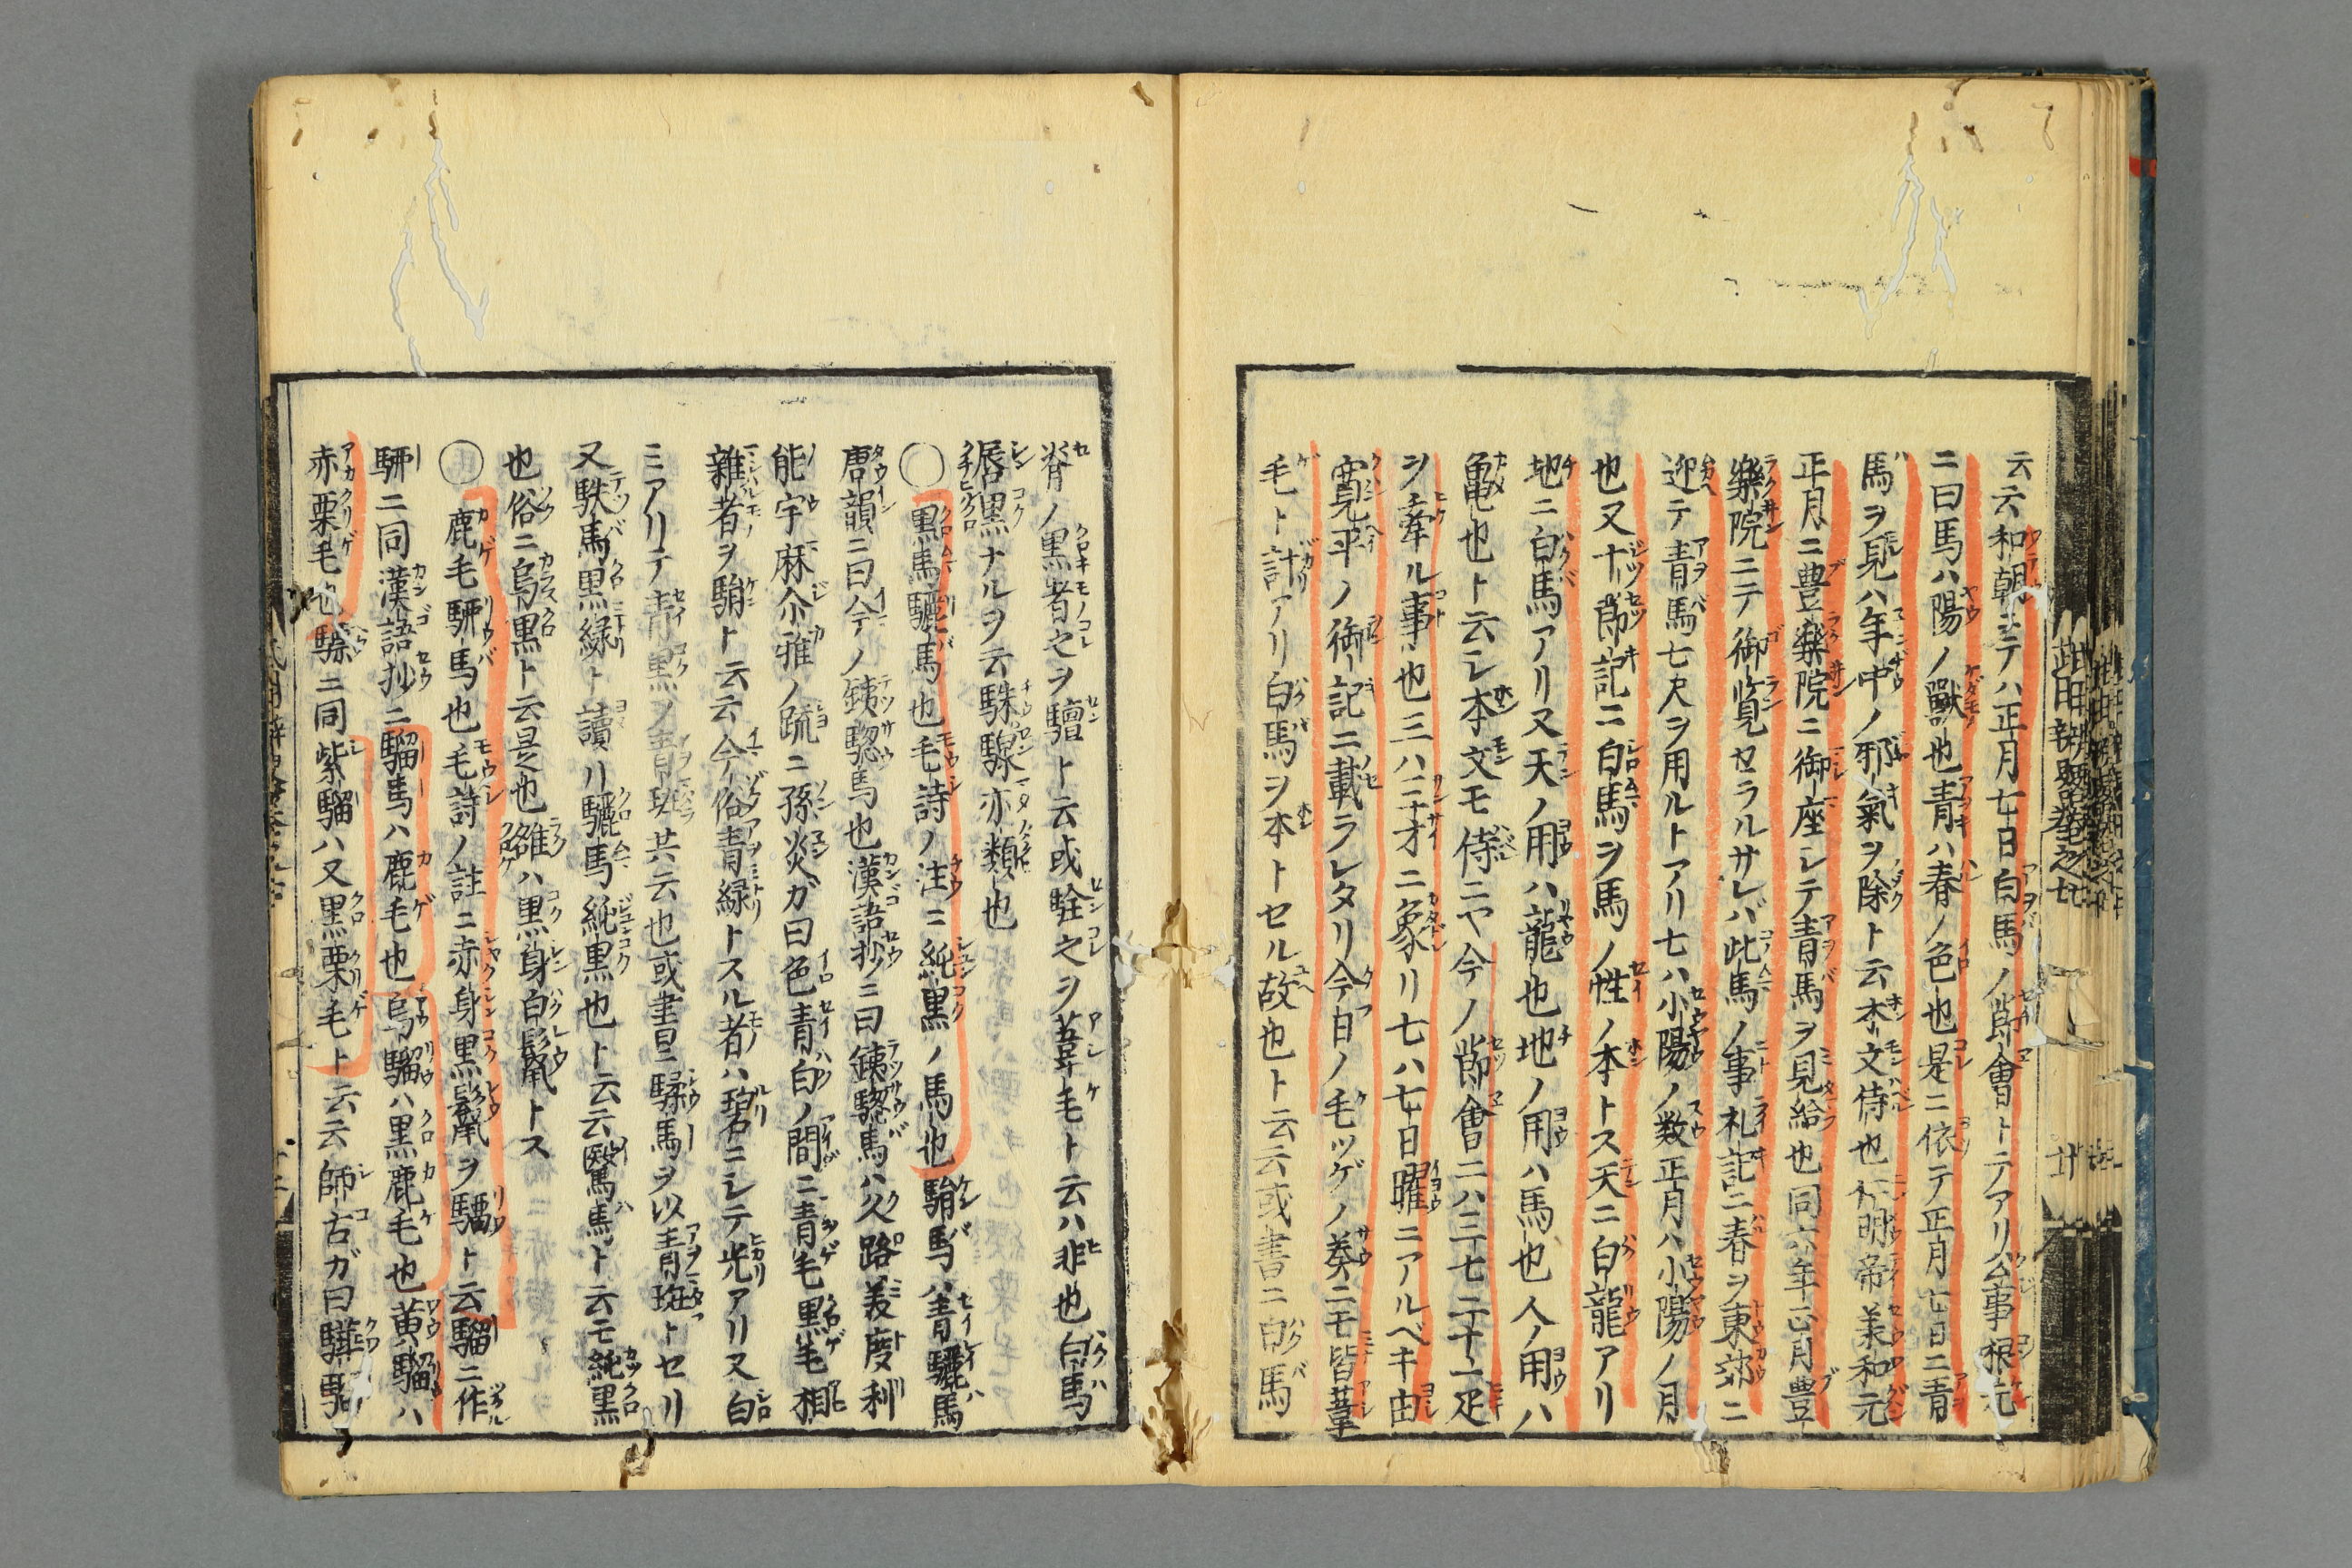 云云和朝ニテハ正月七日白馬ノ節會トテアリ公事根元
ニ曰馬ハ陽ノ獸也青ハ春ノ色也是ニ依テ正月七日ニ青
馬ヲ見ハ年中ノ邪氣ヲ除ト云本文侍也仁明帝羕和元
正月ニ豊樂院ニ御座レテ青馬ヲ見給也同六年正月豊
樂院ニテ御覧セラルサレバ此馬ノ事礼記ニ春ヲ東郊ニ
迎テ青馬七疋ヲ用ルトアリ七ハ小陽ノ数正月ハ小陽ノ月
也又十節記ニ白馬ヲ馬ノ性ノ本トス天ニ白龍アリ
地ニ白馬アリ又天ノ用ハ龍也地ノ用ハ馬也人ノ用ハ
亀也ト云レ本文モ侍ニヤ今ノ節會ニハ三七二十一疋
ヲ牽ル事也三ハ三才ニ象リ七ハ七日曜ニアルベキ由
寛平ノ御記ニ載ラレタリ今日ノ毛ツゲノ葵ニモ皆葦
毛ト計アリ白馬ヲ本トセル故也ト云云或書ニ白馬
脊ノ黒者之ヲ驙ト云或駩之ヲ葦毛ト云ハ非也白馬
唇黒ナルヲ云駯騡亦類也
○黒馬驪馬也毛詩ノ注ニ純黒ノ馬也駽馬ハ青驪馬
唐韻ニ曰今ノ銕騘馬也漢語抄ニ曰銕騘馬ハ久路美度利
能宇麻尒雅ノ疏ニ孫炎ガ曰色青白ノ間ニ青毛黒毛相
雜者ヲ駽ト云云今俗青緑トスル者ハ碧ニレテ光アリ又白
ミアリテ青黒ノ青斑共云也或書ニ騥馬ヲ以青斑トセリ
又駃馬黒緑ト讀リ驪馬純黒也ト云云驚馬ト云モ純黒
也俗ニ烏黒ト云是也雒ハ黒身白鬛トス
○鹿毛駵馬也毛詩ノ註ニ赤身黒鬛ヲ騮ト云騮ニ作
駵ニ同漢語抄ニ騮馬ハ鹿毛也烏騮ハ黒鹿毛也黄騮ハ
赤栗毛也騟ニ同紫騮ハ又黒栗毛ト云云師古ガ曰